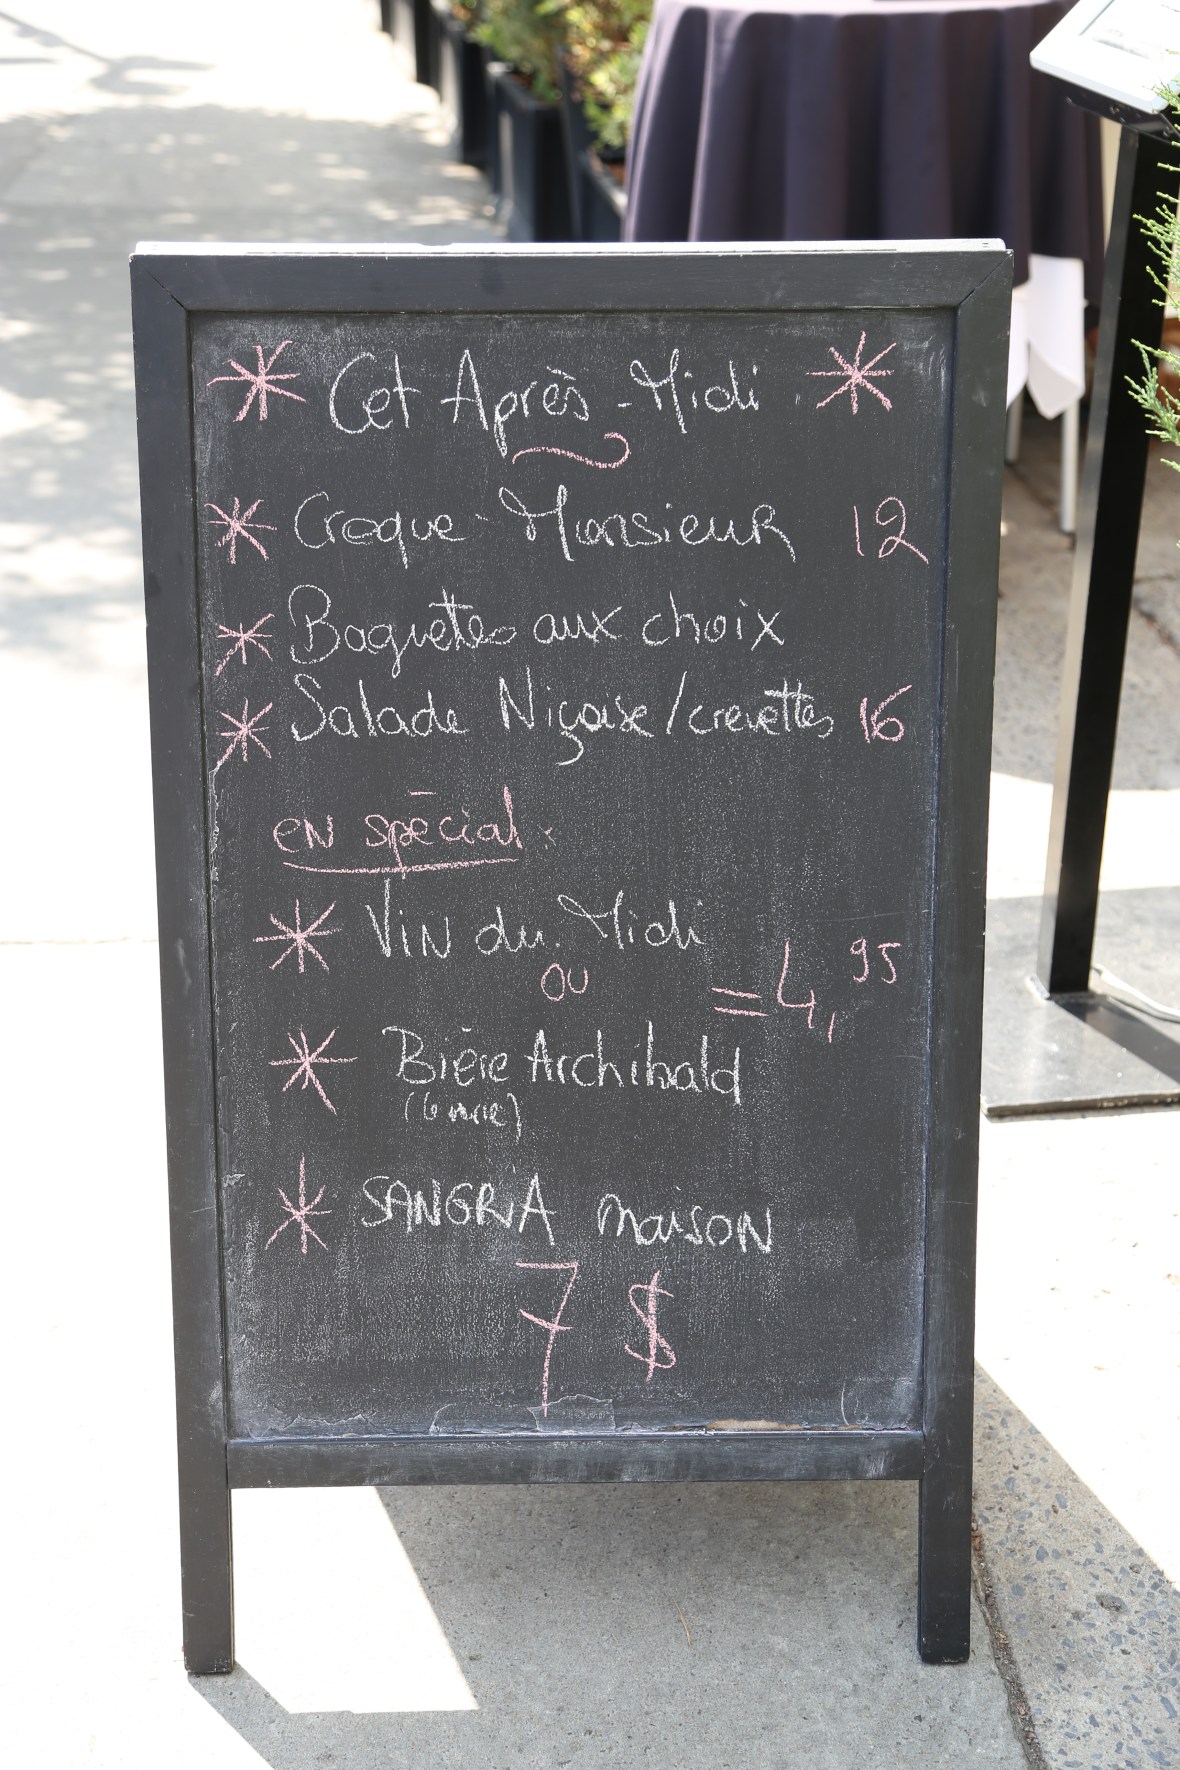 Cet Après-Midi
Croque-Monsieur 12
Baguettes aux choix
Salade Niçoise/crevettes 16
en spécial.
Vin du Midi
ou
= 4,95
Bière Archibald
SANGRIA maison
7 $